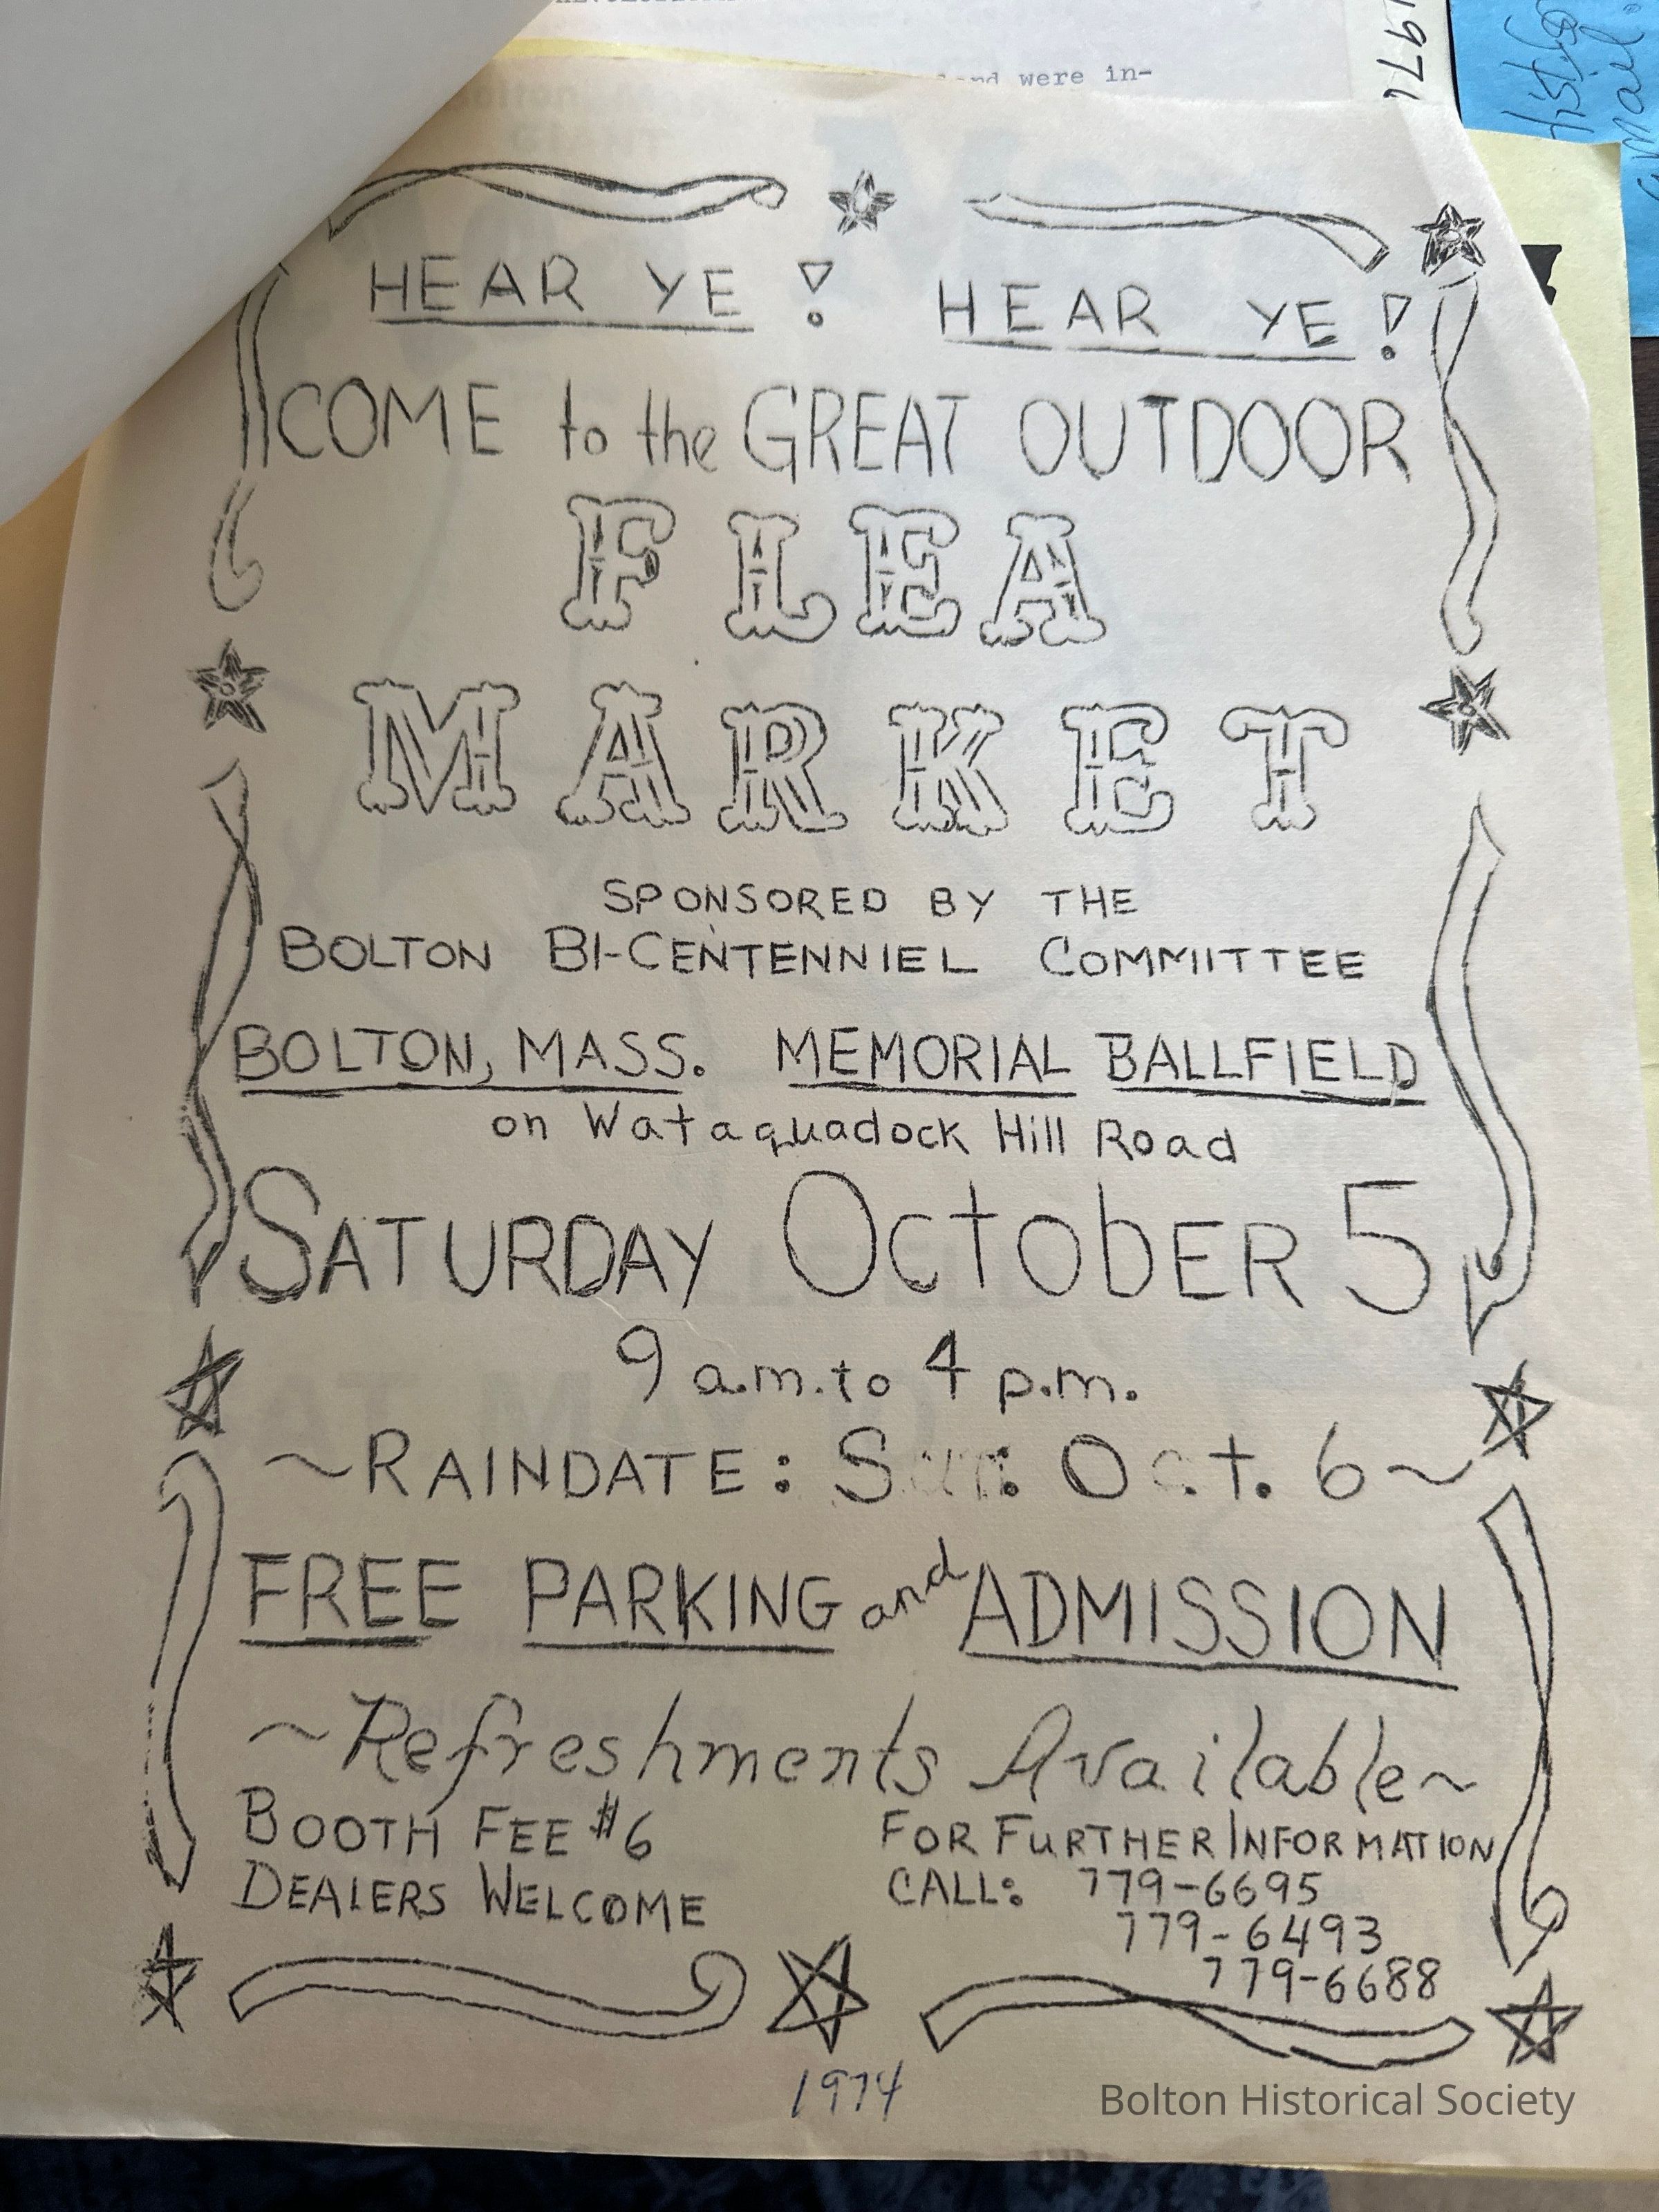 and were in-
1971
HEAR YE! HEAR YE!
COME to the GREAT OUTDOOR
FLEA
MARKET
SPONSORED BY THE
BOLTON BI-CENTENNIEL COMMITTEE
BOLTON, MASS. MEMORIAL BALLFIELD
on Wataquadock Hill Road
SATURDAY OctobER 5
9 a.m. to 4 p.m.
~RAINDATE: Sun. Oct. 6~
FREE PARKING and ADMISSION
~Refreshments Available~
BOOTH FEE $6
DEALERS WELCOME
FOR FURTHER INFORMATION
CALL: 779-6695
779-6493
779-6688
1974
Bolton Historical Society